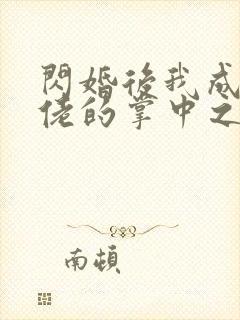 閃婚後我成
佬的掌中之
南頓